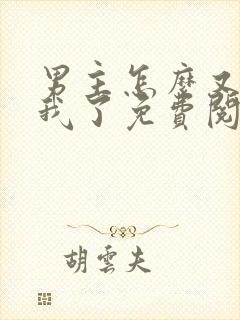 男主怎麼又
我了免費閱
胡雲夫